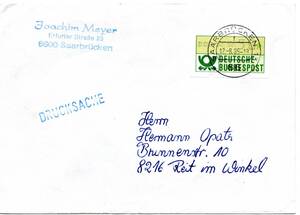 Joachim Meyer
Erfurter Straße 23
6600 Saarbrücken
SAARBRÜCKEN
DEUTSCHE
BUNDESPOST
DRUCKSACHE
Herrn
Hermann Opatz
Brunnenstr. 10
8216 Reit im Winkel